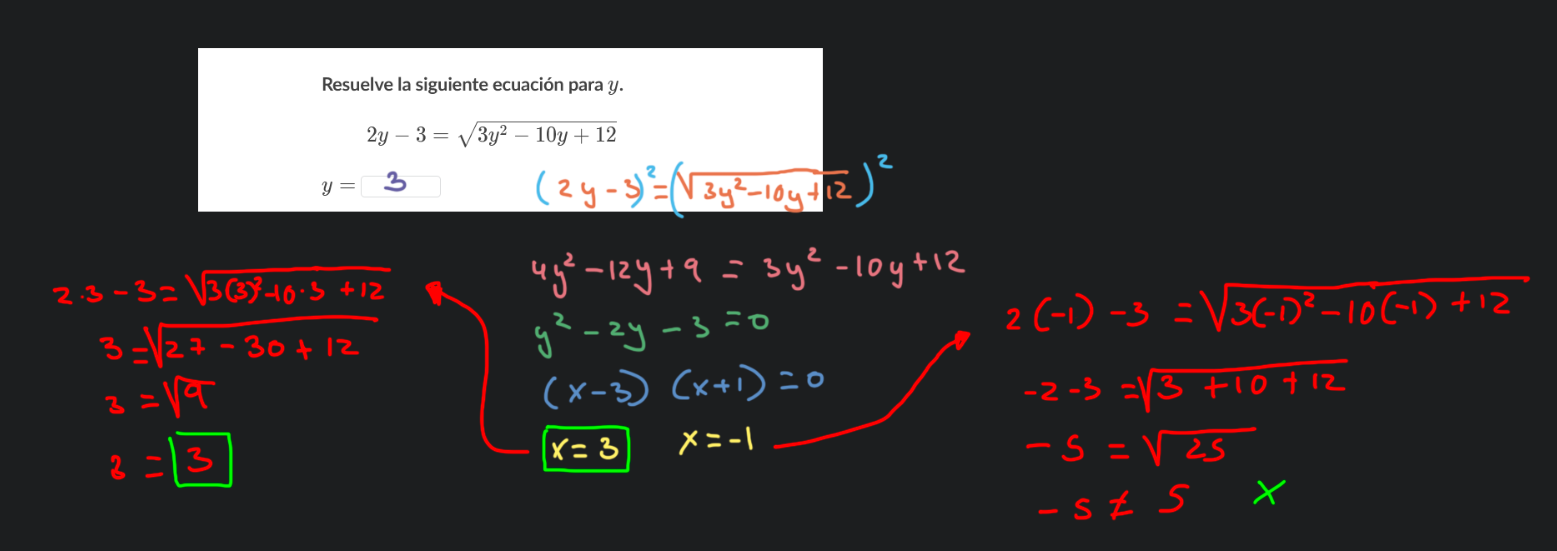 Resuelve la siguiente ecuación para y.
2y − 3 = √(3y² − 10y + 12)
y = 3
(2y-3)² = (√(3y²-10y+12))²
4y² - 12y + 9 = 3y² - 10y + 12
y² - 2y - 3 = 0
(x-3) (x+1) = 0
x = 3 x = -1
2·3 - 3 = √(3(3)² -10·3 + 12)
3 = √(27 - 30 + 12)
3 = √9
3 = 3
2(-1) - 3 = √(3(-1)² - 10(-1) + 12)
-2 - 3 = √(3 + 10 + 12)
-5 = √25
-5 ≠ 5 X